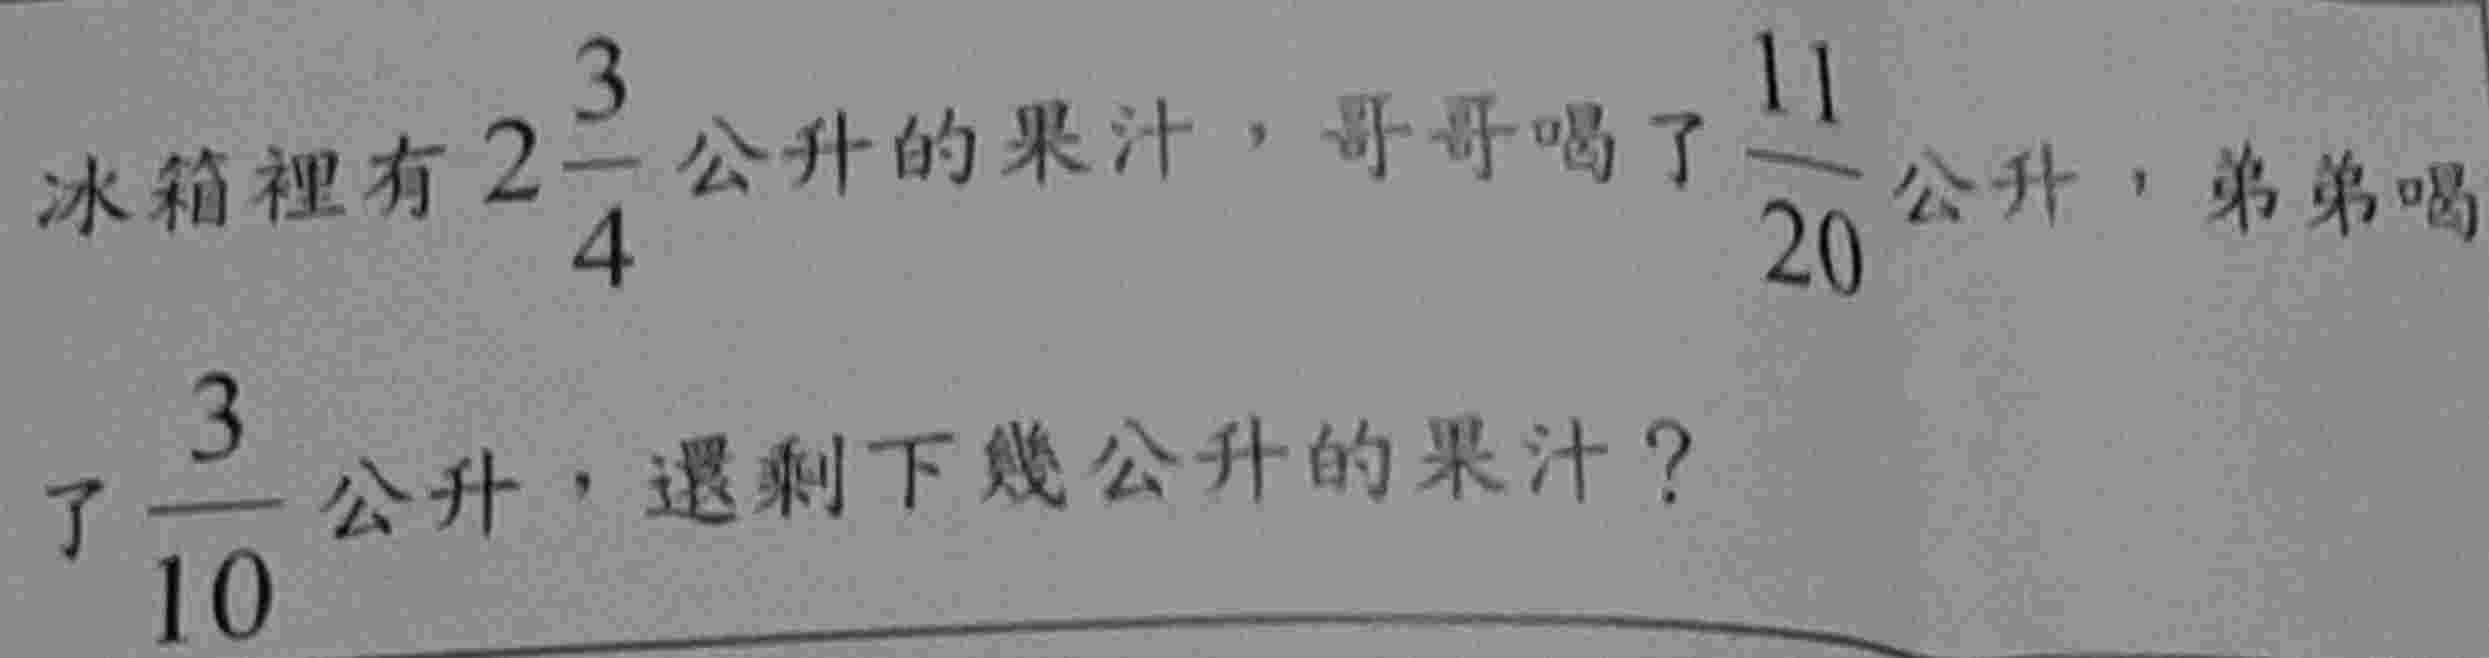 冰箱裡有2 3/4公升的果汁，哥哥喝了11/20公升，弟弟喝
了3/10公升，還剩下幾公升的果汁？